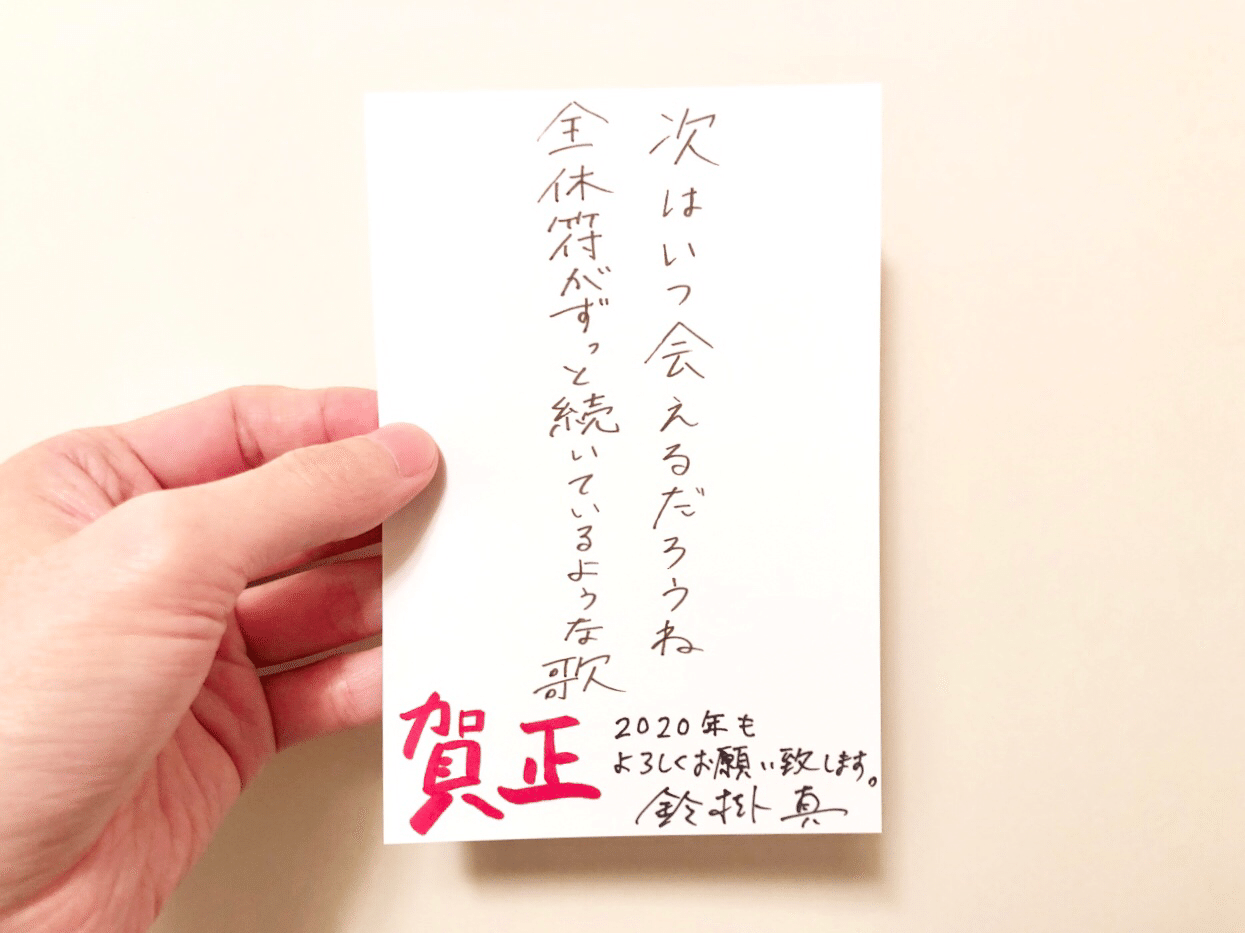 次はいつ会えるだろうね
全休符がずっと続いているような歌
賀正
2020年も
よろしくお願い致します。
鈴掛真